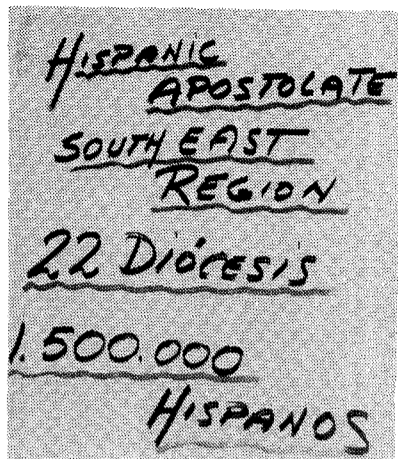 HISPANIC
APOSTOLATE
SOUTH EAST
REGION
22 DIÓCESIS
1.500.000
HISPANOS